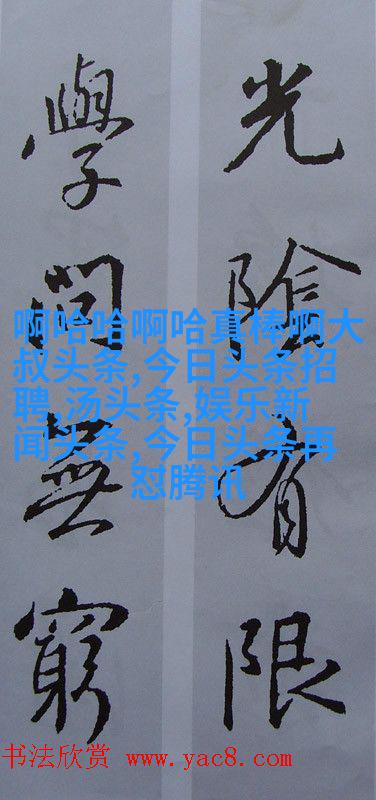 光陰有限
學問無窮
啊哈哈啊哈真棒啊大
叔头条,今日头条招
聘,汤头条,娱乐新
闻头条,今日头条再
怼腾讯
书法欣赏 www.yac8.com